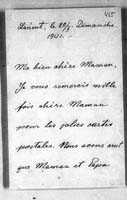 415
Clarent, le 29/3. Dimanche.
1901.
Ma bien chère Maman,
Je vous remercie mille
fois chère Maman
pour les jolies cartes
postales. Nous avons cru
que Maman et Papa